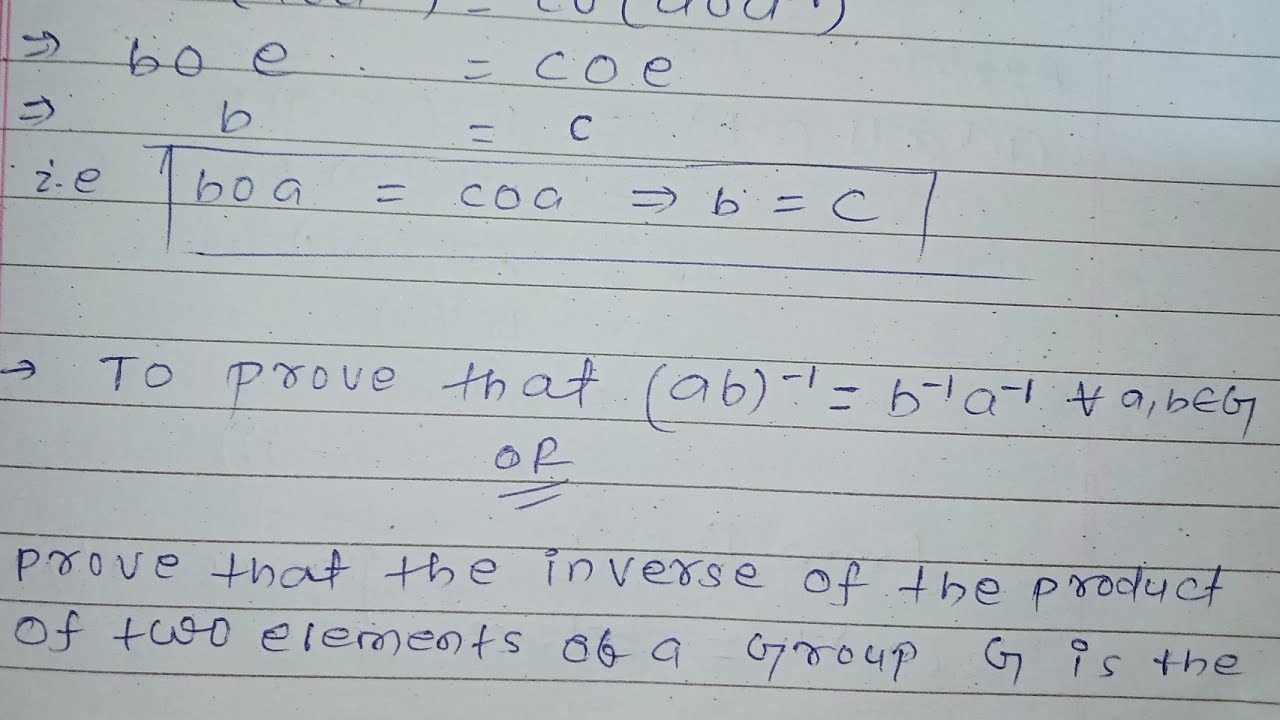 ⇒ boe = coe
⇒ b = c
i.e boa = coa ⇒ b = c
→ To prove that (ab)⁻¹ = b⁻¹a⁻¹ ∀ a,b∈G
OR
prove that the inverse of the product
of two elements of a Group G is the